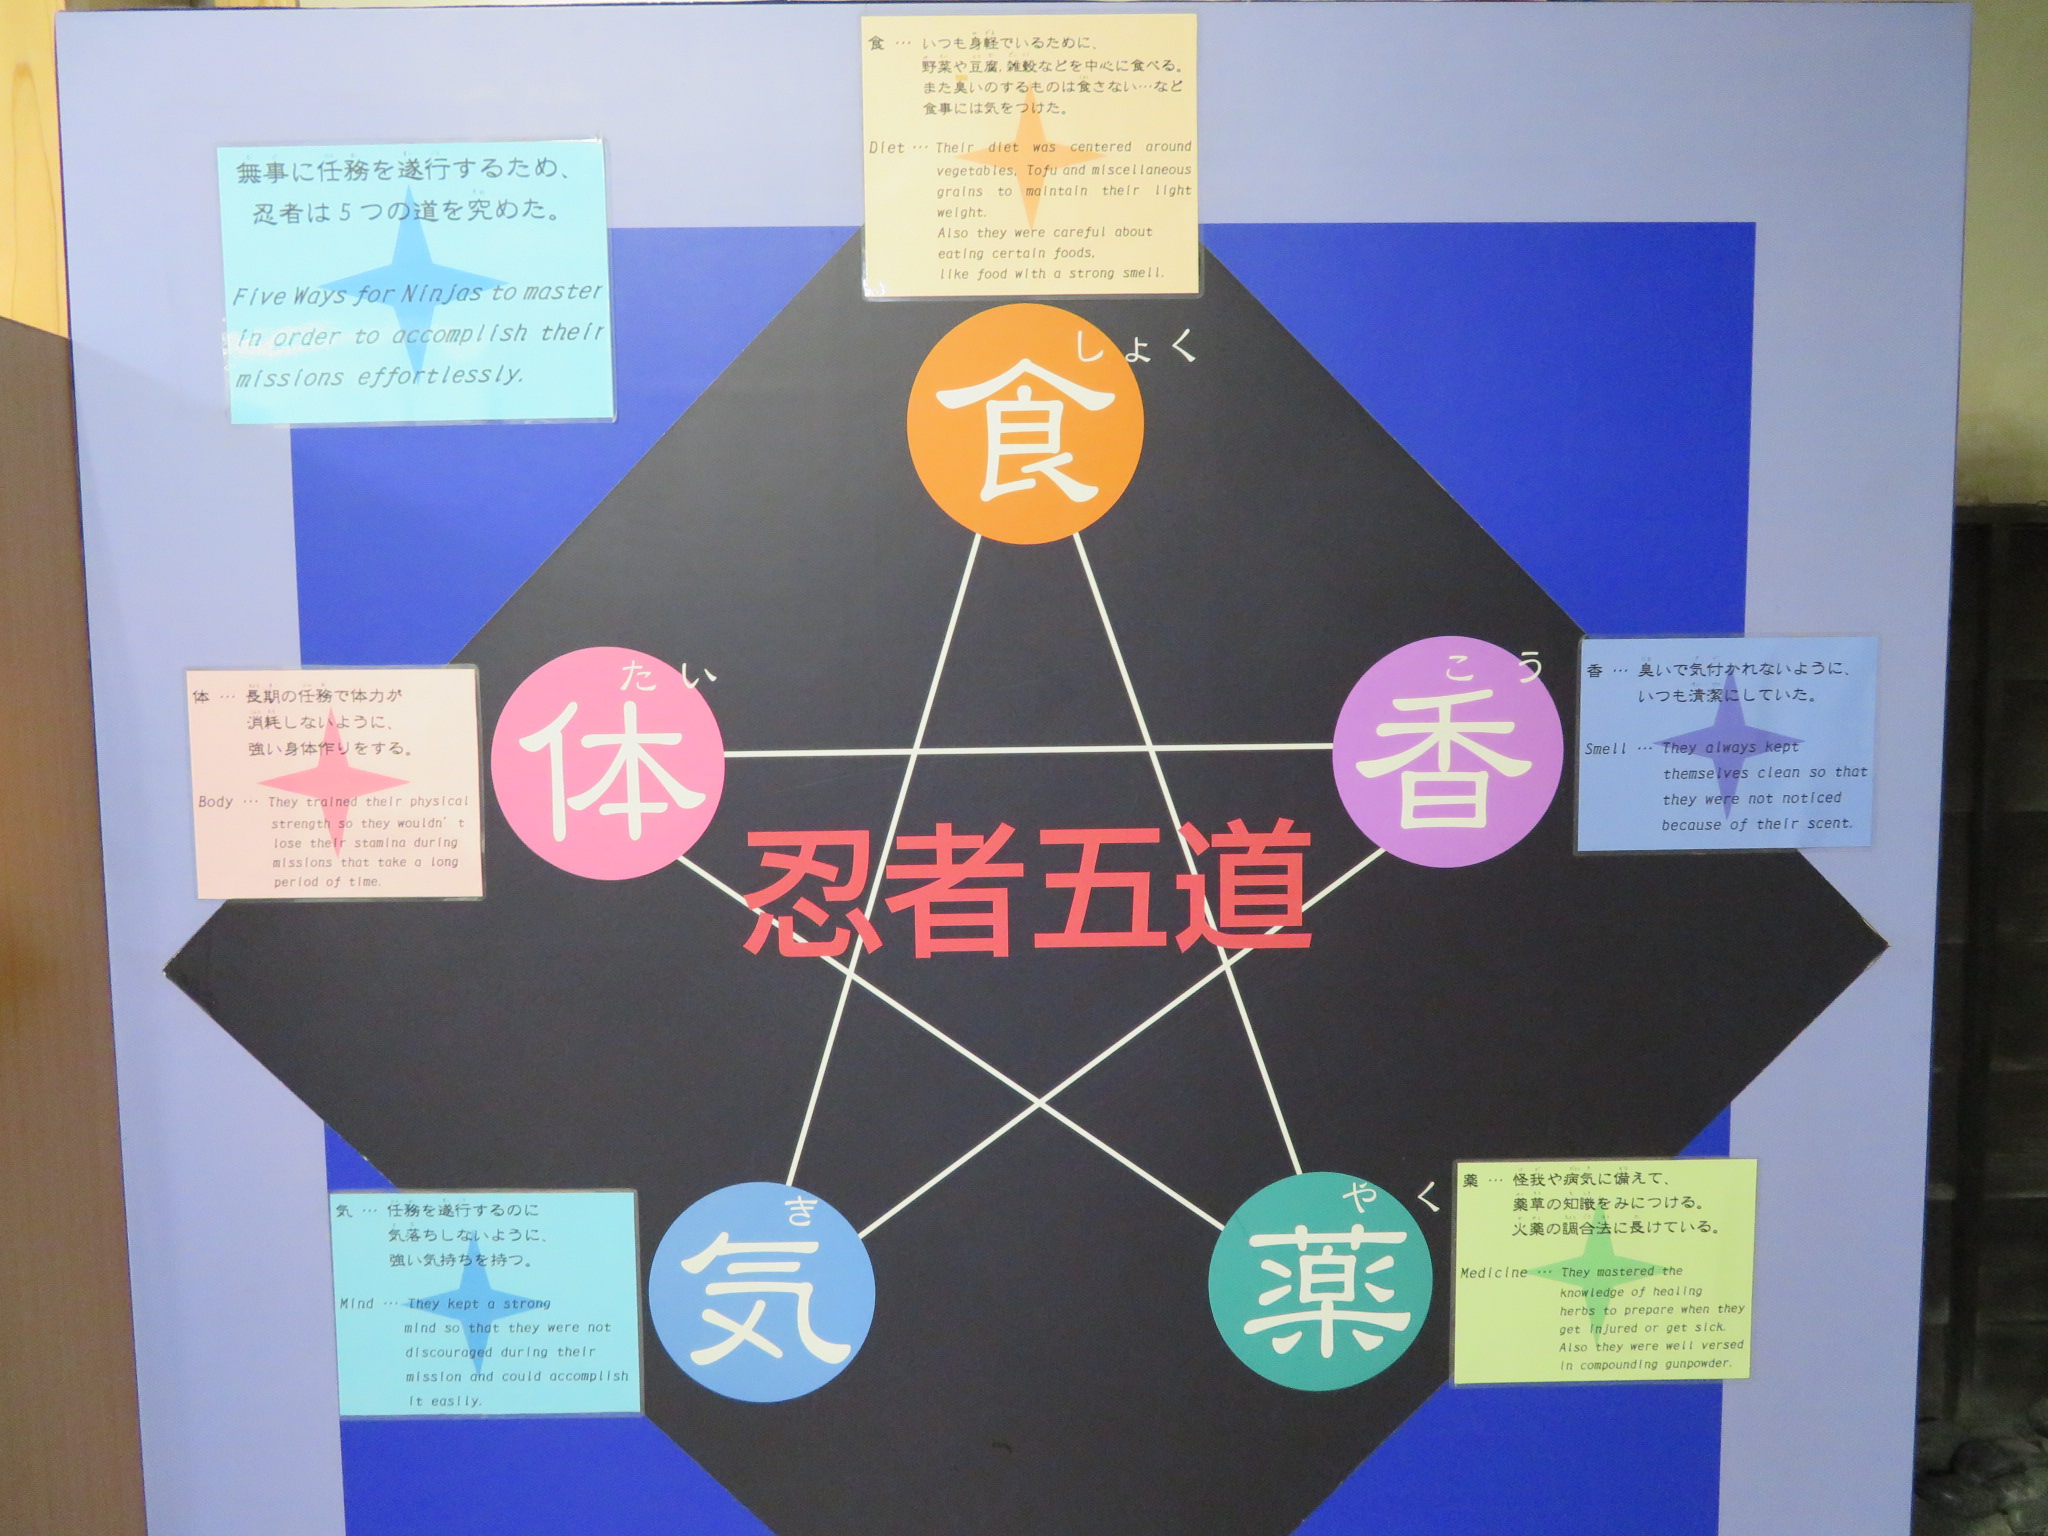 無事に任務を遂行するため、
忍者は5つの道を究めた。
Five Ways for Ninjas to master
in order to accomplish their
missions effortlessly.
食 … いつも身軽でいるために、
野菜や豆腐,雑穀などを中心に食べる。
また臭いのするものは食さない…など
食事には気をつけた。
Diet … Their diet was centered around
vegetables, Tofu and miscellaneous
grains to maintain their light
weight.
Also they were careful about
eating certain foods,
like food with a strong smell.
しょく
食
たい
体
こう
香
忍者五道
き
気
やく
薬
体 … 長期の任務で体力が
消耗しないように、
強い身体作りをする。
Body … They trained their physical
strength so they wouldn't
lose their stamina during
missions that take a long
period of time.
香 … 臭いで気付かれないように、
いつも清潔にしていた。
Smell … They always kept
themselves clean so that
they were not noticed
because of their scent.
気 … 任務を遂行するのに
気落ちしないように、
強い気持ちを持つ。
Mind … They kept a strong
mind so that they were not
discouraged during their
mission and could accomplish
it easily.
薬 … 怪我や病気に備えて、
薬草の知識をみにつける。
火薬の調合法に長けている。
Medicine … They mastered the
knowledge of healing
herbs to prepare when they
get injured or get sick.
Also they were well versed
in compounding gunpowder.